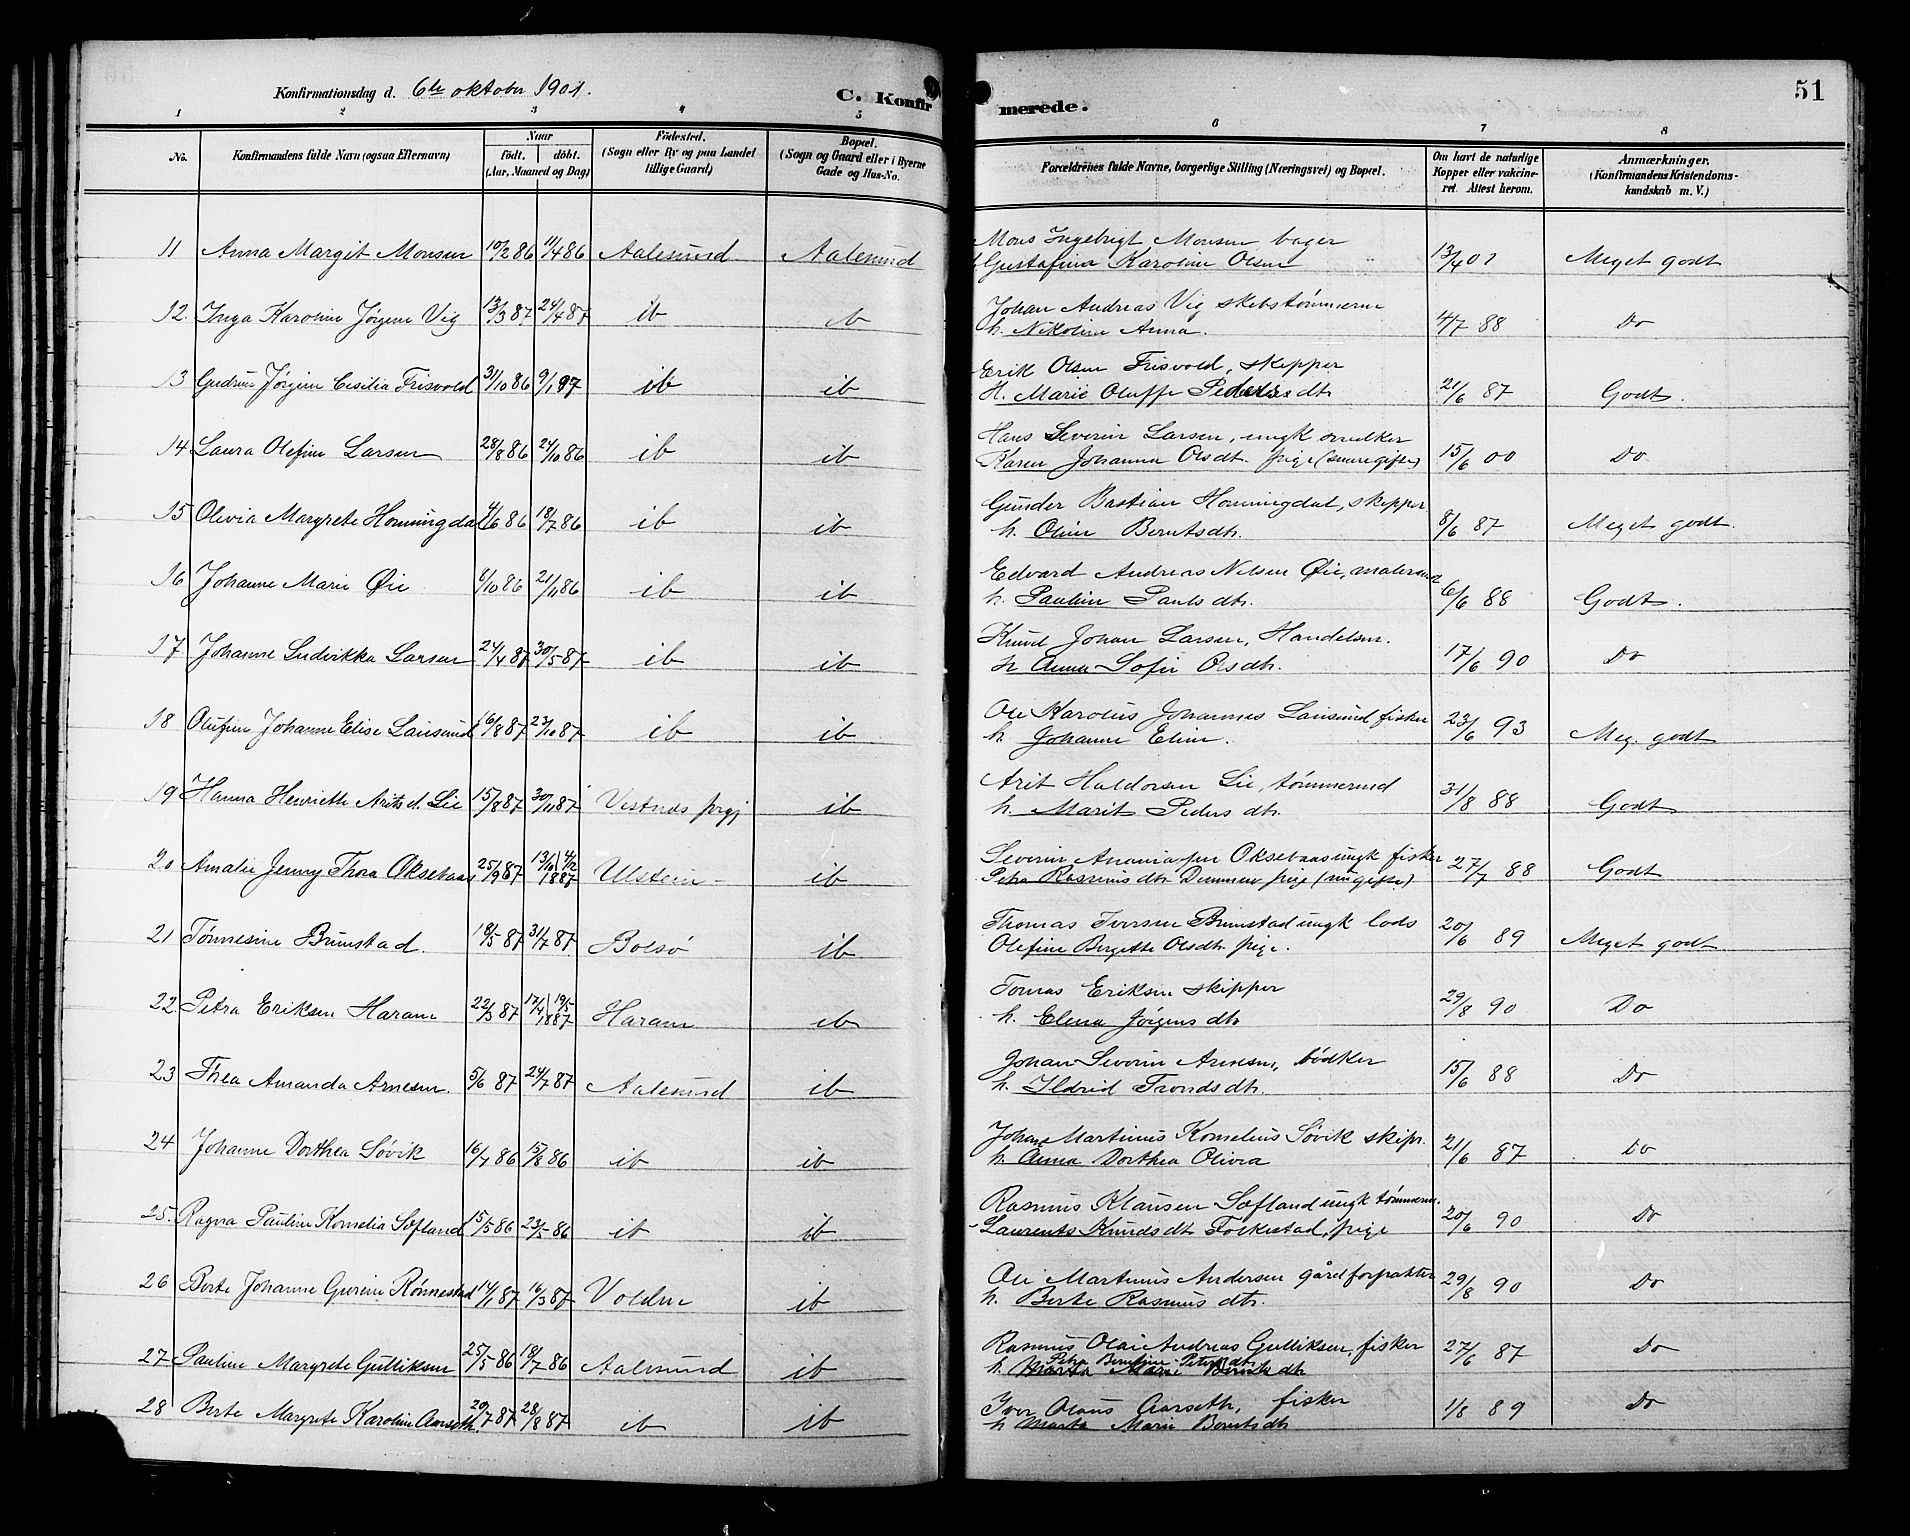 Konfirmationsdag d. 6te oktober 1901.
C. Konfirmerede.
51
1 2 3 4 5 6 7 8
No.
Konfirmandens fulde Navn (ogsaa Efternavn)
Naar
födt. döbt.
(Aar, Maaned og Dag)
Födested.
(Sogn eller By og paa Landet
tillige Gaard)
Bopæl.
(Sogn og Gaard eller i Byerne
Gade og Hus-No.
Forældrenes fulde Navne, borgerlige Stilling (Næringsvei) og Bopæl.
Om havt de naturlige
Kopper eller vakcineret.
Attest herom.
Anmærkninger.
(Konfirmandens Kristendomskundskab
m. V.)
11 Anna Margit Monsen 10/2 86 11/4 86 Aalesund Aalesund Mons Ingebrigt Monsen bager 13/4 01 Meget godt
Gustafina Karoline Olsen
12. Inga Karoline Jørgine Vig 13/3 87 24/4 87 ib ib Johan Andreas Vig skibstømmerm 4/7 88 Do
h. Nikoline Anna.
13 Gudrun Jørgine Cecilia Frisvold 31/10 86 9/1 87 ib ib Erik Olsen Frisvold, skipper 21/6 87 Godt.
H. Marie Oluffe Pedersdt
14 Laura Olefine Larsen 28/8 86 24/10 86 ib ib Hans Severin Larsen, ungk snedker 15/6 00 Do
Karen Johanna Olsdt. pige
15 Olivia Margrete Honningdal 4/6 86 18/7 86 ib ib Gunder Bastian Honningdal, skipper 8/6 87 Meget godt.
h. Oline Berntsdt.
16 Johanne Marie Øie /10 86 21/11 86 ib ib Edvard Andreas Nilsen Øie, 6/6 88 Godt.
h. Pauline Paulsdt.
17 Johanne Ludvikka Larsen 24/4 87 30/5 87 ib ib Knud Johan Larsen, Handelsm. 17/6 90 Do
h Anna Sofie Olsdt.
18 Olufine Johanne Elise Lausund 16/8 87 23/10 87 ib ib Ole Karolus Johannes Lausund fisker 23/6 93 Meg. godt
h. Johanne Eline.
19 Hanna Henriette Aritsd. Lie 15/8 87 30/10 87 Vestnæs prgj ib Arit Haldorsen Lie, tømmermd 31/8 88 Godt
h. Marit Pedersdt.
20 Amalie Jenny Thora Oksebaas 25/9 87 13/10 4/12 1887 Ulstein ib Severin Oksebaas ungk fisker 27/7 88 Godt
Petra Rasmusdt pige (ungifte)
21 Tønnesine Brunstad. 18/5 87 31/7 87 Bolsø ib Thomas Iversen Brunstad ungk lods 20/6 89 Meget godt
Olefine Bergette Olsdt. pige.
22. Petra Eriksen Haram 22/3 87 17/4 19/5 1887 Haram ib Tomas Eriksen skipper 29/8 90 Do
h. Elena Jørgensdt
23 Thea Amanda Arnesen. 5/6 87 24/7 87 Aalesund ib Johan Severin Arnesen, bødker 15/6 88 Do
h. Ildrid Trondsdt.
24 Johanne Dorthea Søvik 16/7 86 15/8 86 ib ib Johan Martinus Kornelius Søvik skipr. 21/6 87 Do
h. Anna Dorthea Olivia
25. Ragna Pauline Kornelia Sæfland 15/5 86 23/5 86 ib ib Rasmus Klausen Sæfland ungk tømmerm. 20/6 90 Do
Laurents Knudsdt Folkestad, pige
26 Berte Johanne Gurine Rønnestad 14/1 87 16/3 87 Volden ib Ole Martinus Andersen gårdforpakter 29/8 90 Do
h. Berte Rasmusdtr.
27 Pauline Margrete Gulliksen 25/5 86 18/7 86 Aalesund ib Rasmus Olai Andreas Gulliksen, fisker 27/6 87 Do
Petra Petersdt
h. Marta Marie Berntsdt
28 Berte Margrete Karoline Aarseth. 20/7 87 28/8 87 ib ib Iver Olaus Aarseth, fisker 1/8 89 Do
h Marta Marie Berntsdt